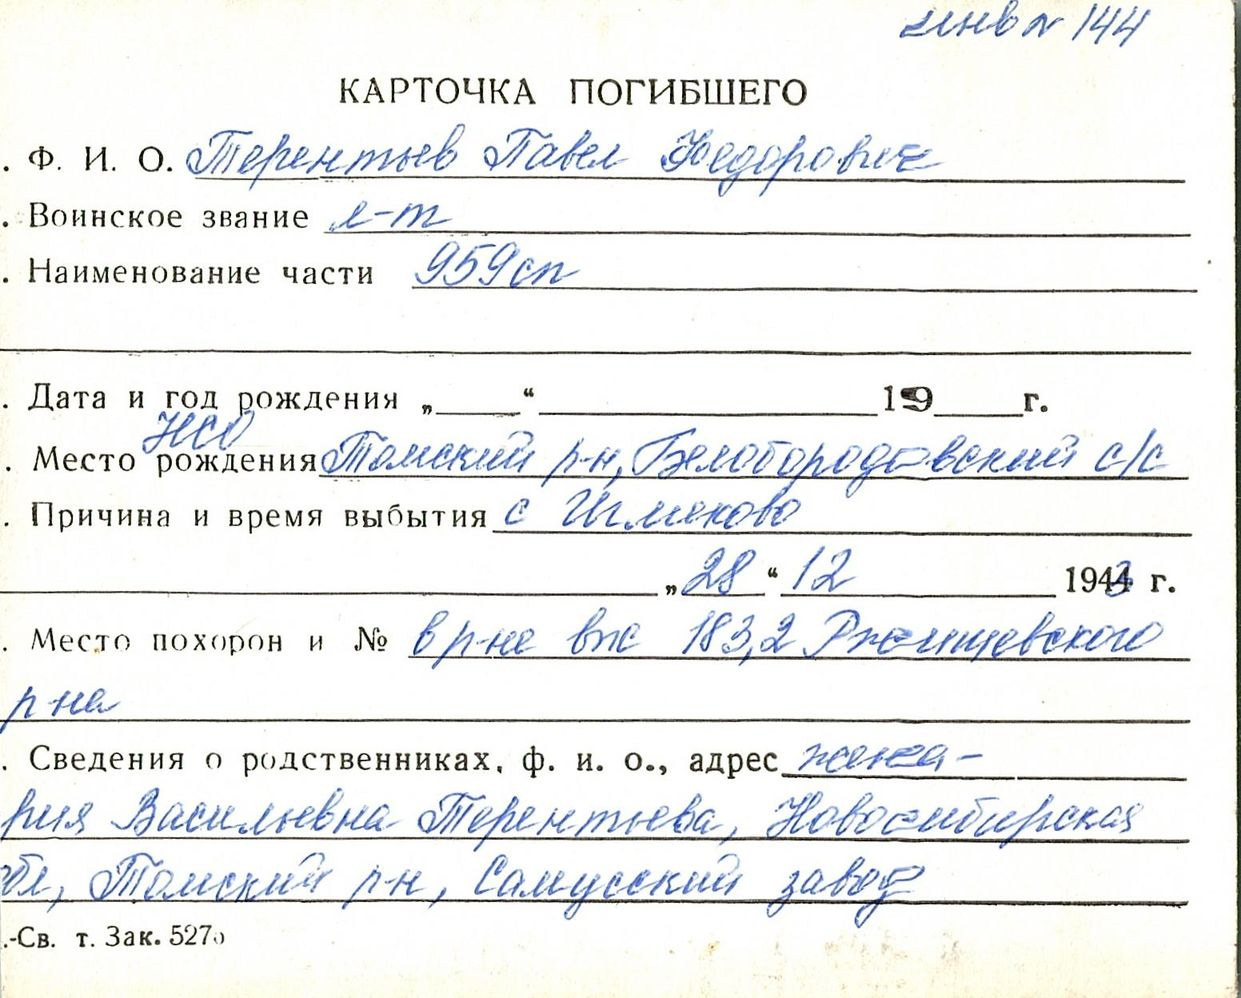 инв № 144
КАРТОЧКА ПОГИБШЕГО
. Ф. И. О. Терентьев Павел Федорович
. Воинское звание л-т
. Наименование части 959сп
. Дата и год рождения „ “ 19 г.
НСО
. Место рождения Томский р-н, Белобородовский с/с
. Причина и время выбытия с
„28“ 12 1943 г.
. Место похорон и № в р-не выс 183,2 Ржищевского
р-на
. Сведения о родственниках, ф. и. о., адрес жена -
рия Васильевна Терентьева, Новосибирская
обл, Томский р-н, Самусский завод
.-Св. т. Зак. 527